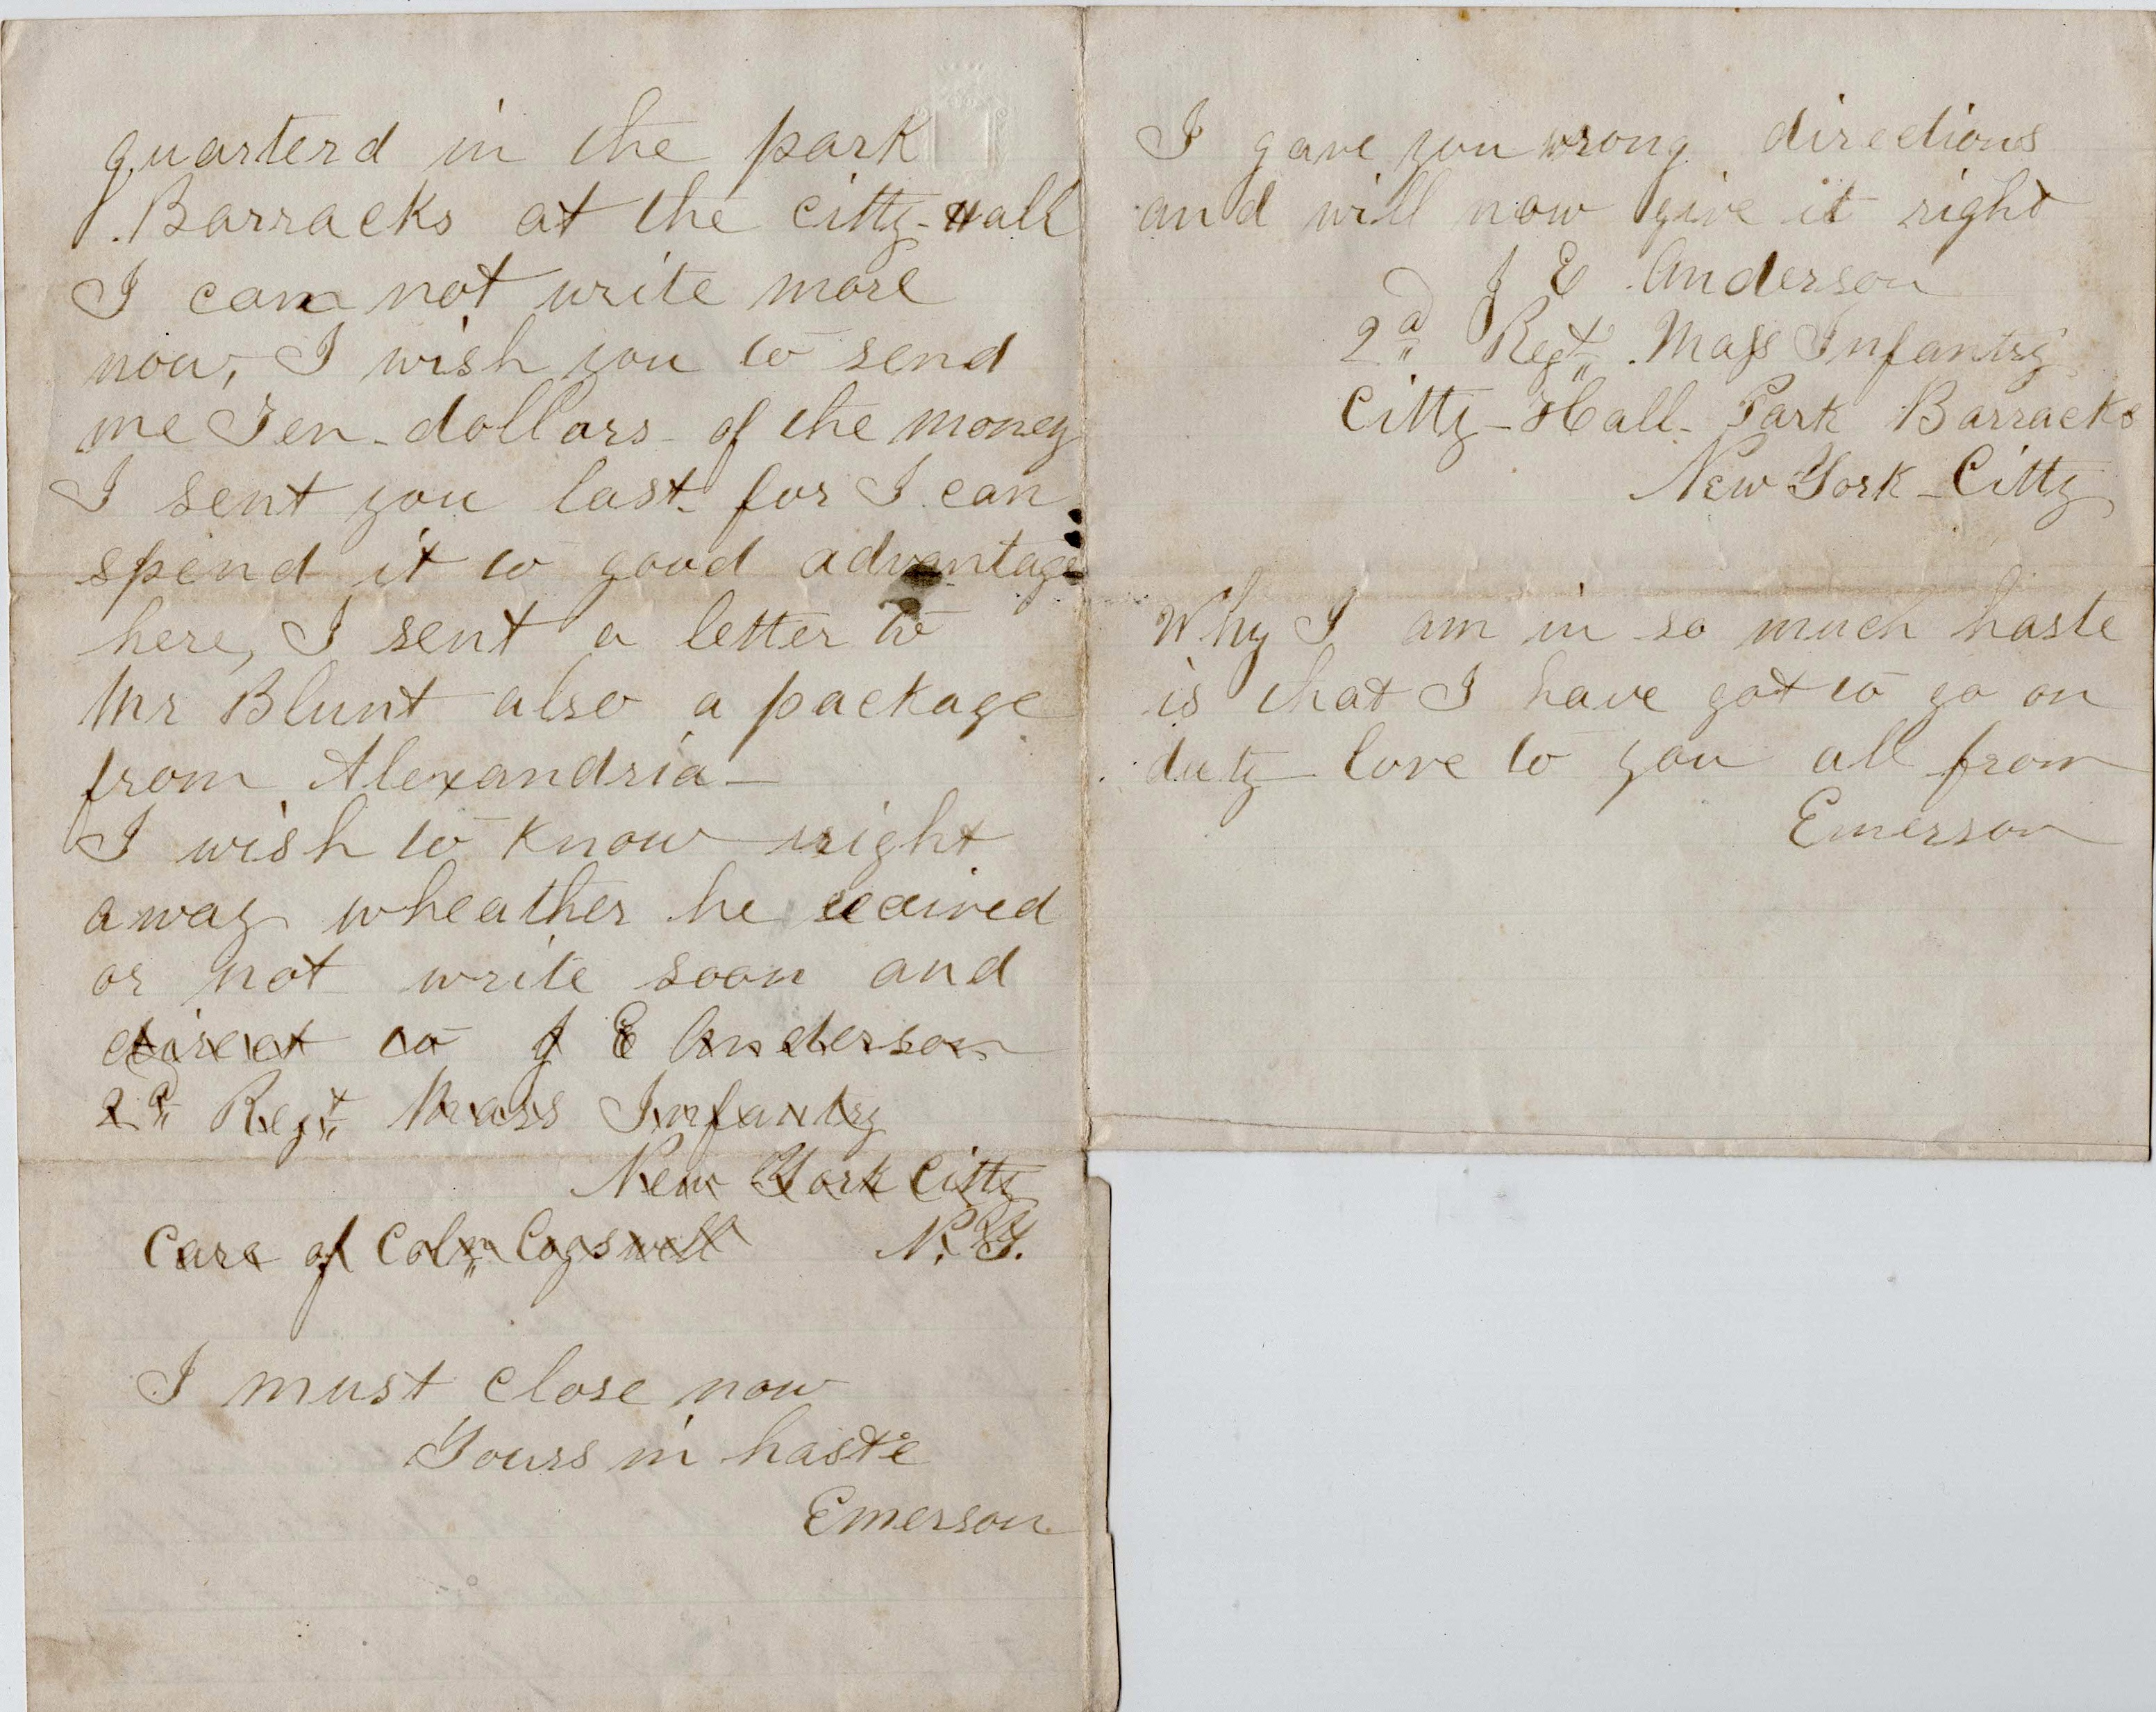 quarterd in the park
Barracks at the citty-Hall
I can not write more
now, I wish you to send
me Ten-dollars- of the money
I sent you last- for I can
spend it to good advantage
here, I sent a letter to
Mr Blunt also a package
from Alexandria-
I wish to know right
away wheather he
or not write soon and
direct to J E Anderson
2d Regt Mass Infantry
New York Citty
Care of Coln Cogswell N.Y.
I must close now
Yours in haste
Emerson
I gave you wrong directions
and will now give it right
J E Anderson
2d Regt Mass Infantry
Citty-Hall-Park Barracks
New York-Citty
Why I am in so much haste
is that I have got to go on
duty love to you all from
Emerson